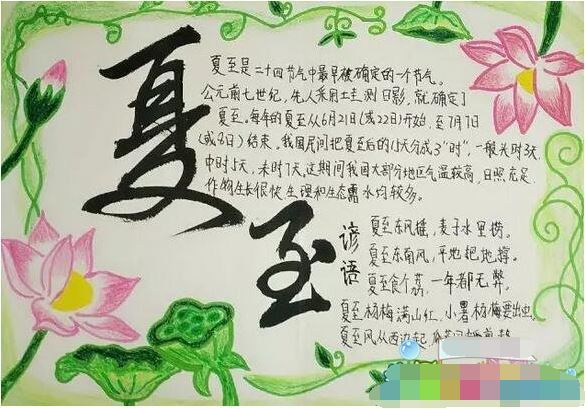 夏至
夏至是二十四节气中最早被确定的一个节气。
公元前七世纪,先人采用土圭测日影,就确定了
夏至。每年的夏至从6月21日(或22日)开始,至7月7日
(或8日)结束。我国民间把夏至后的15天分成3"时",一般头时3天,
中时5天,末时7天。这期间我国大部分地区气温较高,日照充足,
作物生长很快,生理和生态需水均较多。
谚语
夏至东风摇,麦子水里捞。
夏至东南风,平地把船撑。
夏至食个荔,一年都无弊。
夏至杨梅满山红,小暑杨梅要出虫。
夏至风从西边起,